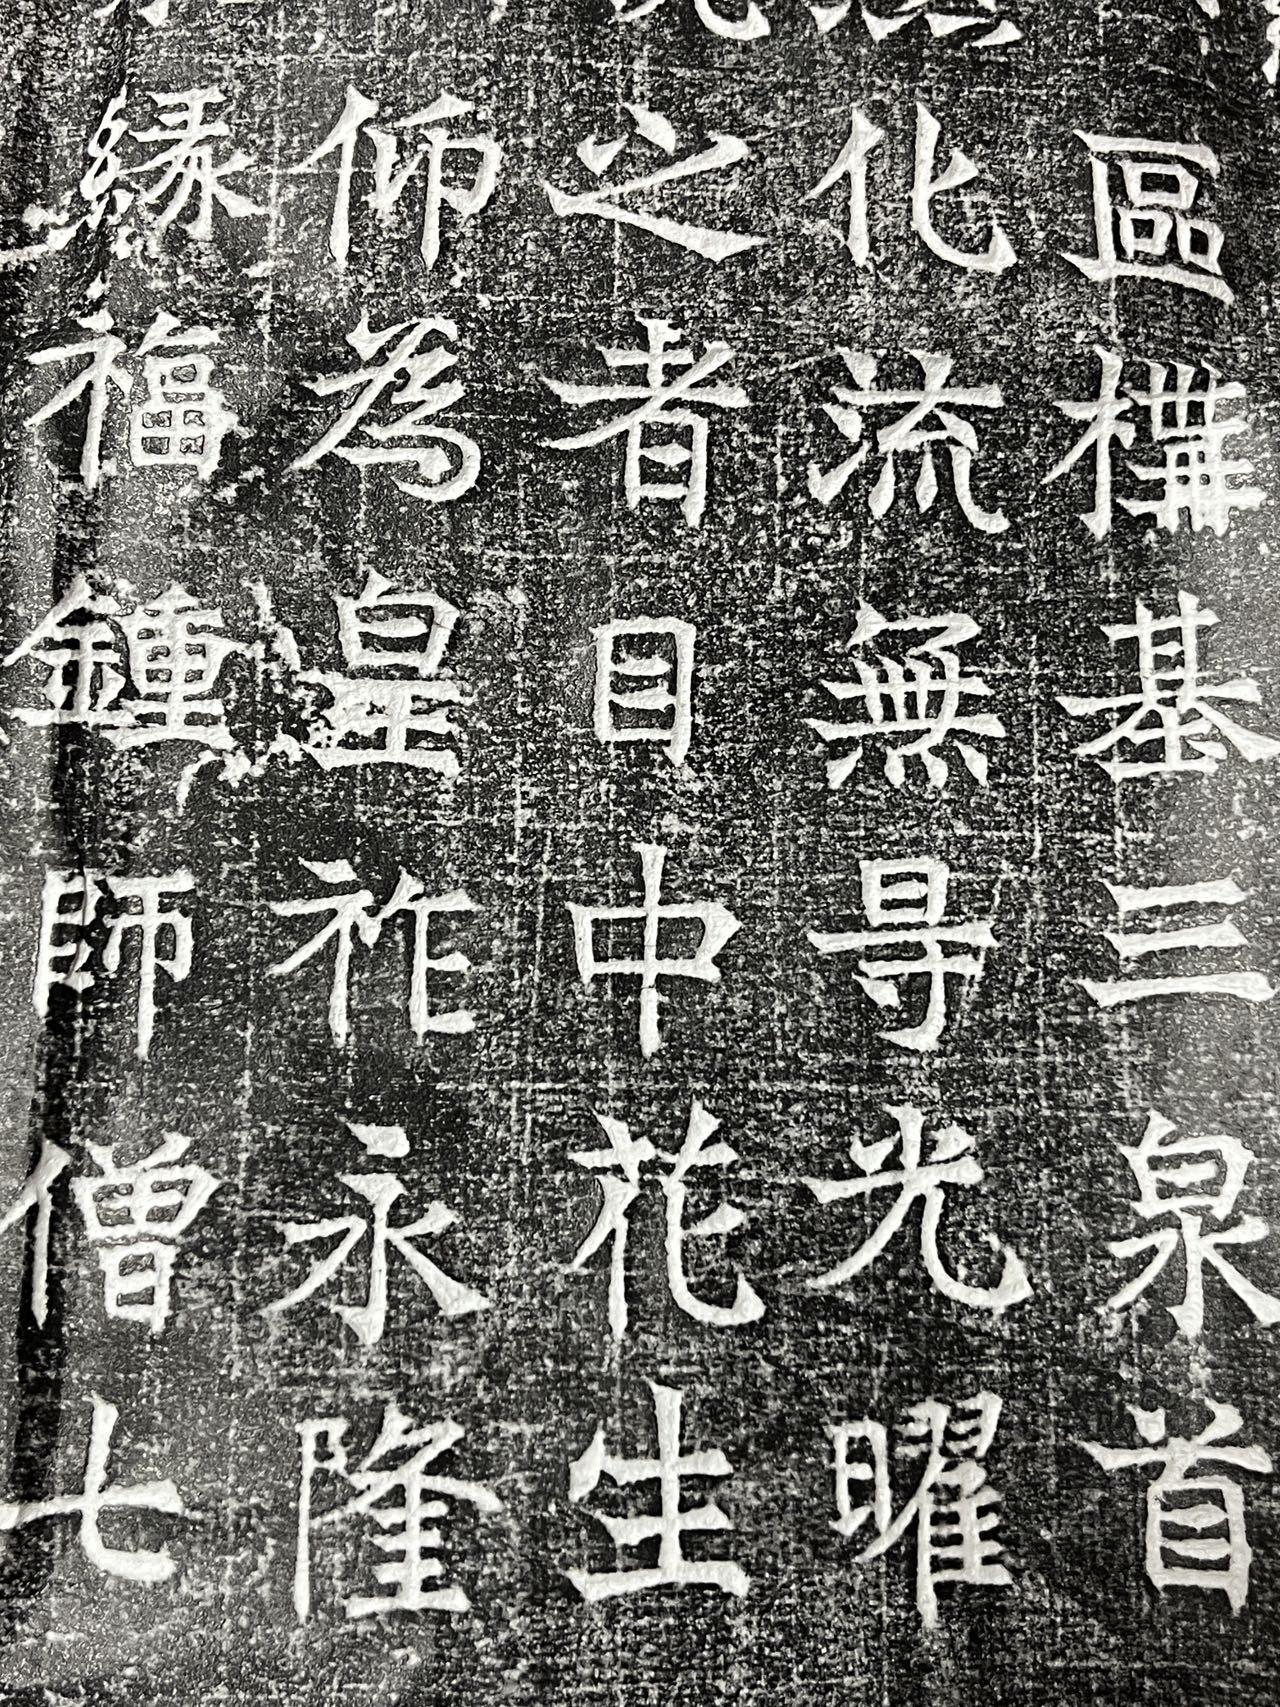 區構基三泉首
化流無㝵光曜
之者目中花生
仰為皇祚永隆
緣福鍾師僧七